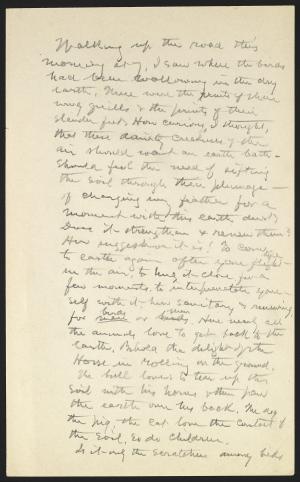 Walking up the road this
morning at 7, I saw where the birds
had been wallowing in the dry
earth. There were the prints of their
wing quills & the prints of their
slender feet. How curious, I thought,
that these dainty creatures of the
air should want an earth bath—
should feel the need of sifting
the soil through their plumage—
of changing every feather for a
moment with this earth dust.
Does it strengthen & renew them?
How suggestive it is! To come
to earth again after your flight
in the air, to hug it close for a
few moments, to interpenetrate your-
self with it—how sanitary & renewing,
for birds or men. How all
the animals love to get back to the
earth. Behold the delight of the
Horse in rolling on the ground.
The bull loves to tear up the
soil with his horns & then paw
the earth over his back. The dog
the pig, the cat love the contact of
the soil, so do children.
Is it only the scratchers among birds